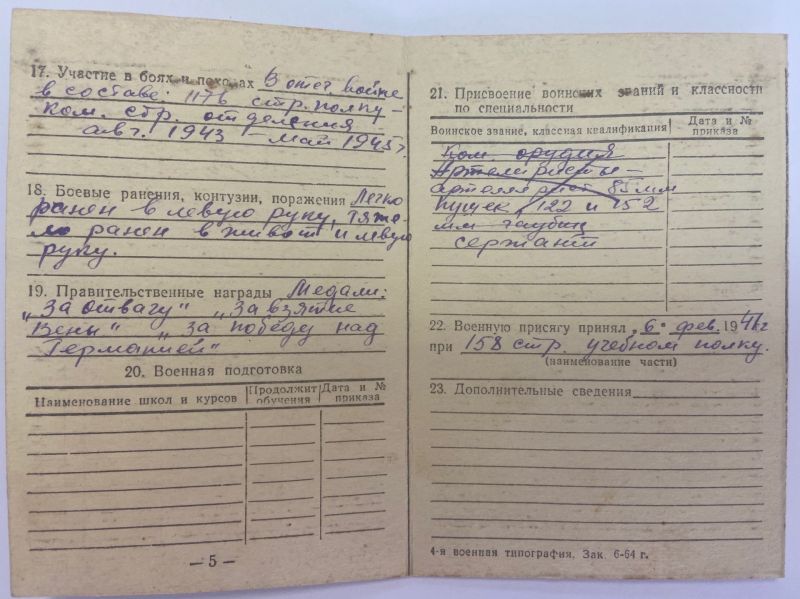 17. Участие в боях и походах В отеч войне
в составе: 1176 стр. полку –
ком. стр. отделения
авг. 1943 – май 1945 г.
18. Боевые ранения, контузии, поражения Легко
ранен в левую руку, тяже-
ло ранен в живот и левую
руку.
19. Правительственные награды Медали:
„За отвагу" „За взятие
Вены" „За победу над
Германией"
20. Военная подготовка
Наименование школ и курсов
Продолжит обучения
Дата и № приказа
— 5 —
21. Присвоение воинских званий и классности
по специальности
Воинское звание, классная квалификация
Дата и № приказа
Ком. орудия
85 мм
пушек, 122 и 152
мм гаубиц
сержант
22. Военную присягу принял „6" фев. 194 г
при 158 стр. учебном полку.
(наименование части)
23. Дополнительные сведения
4-я военная типография. Зак. 6-64 г.